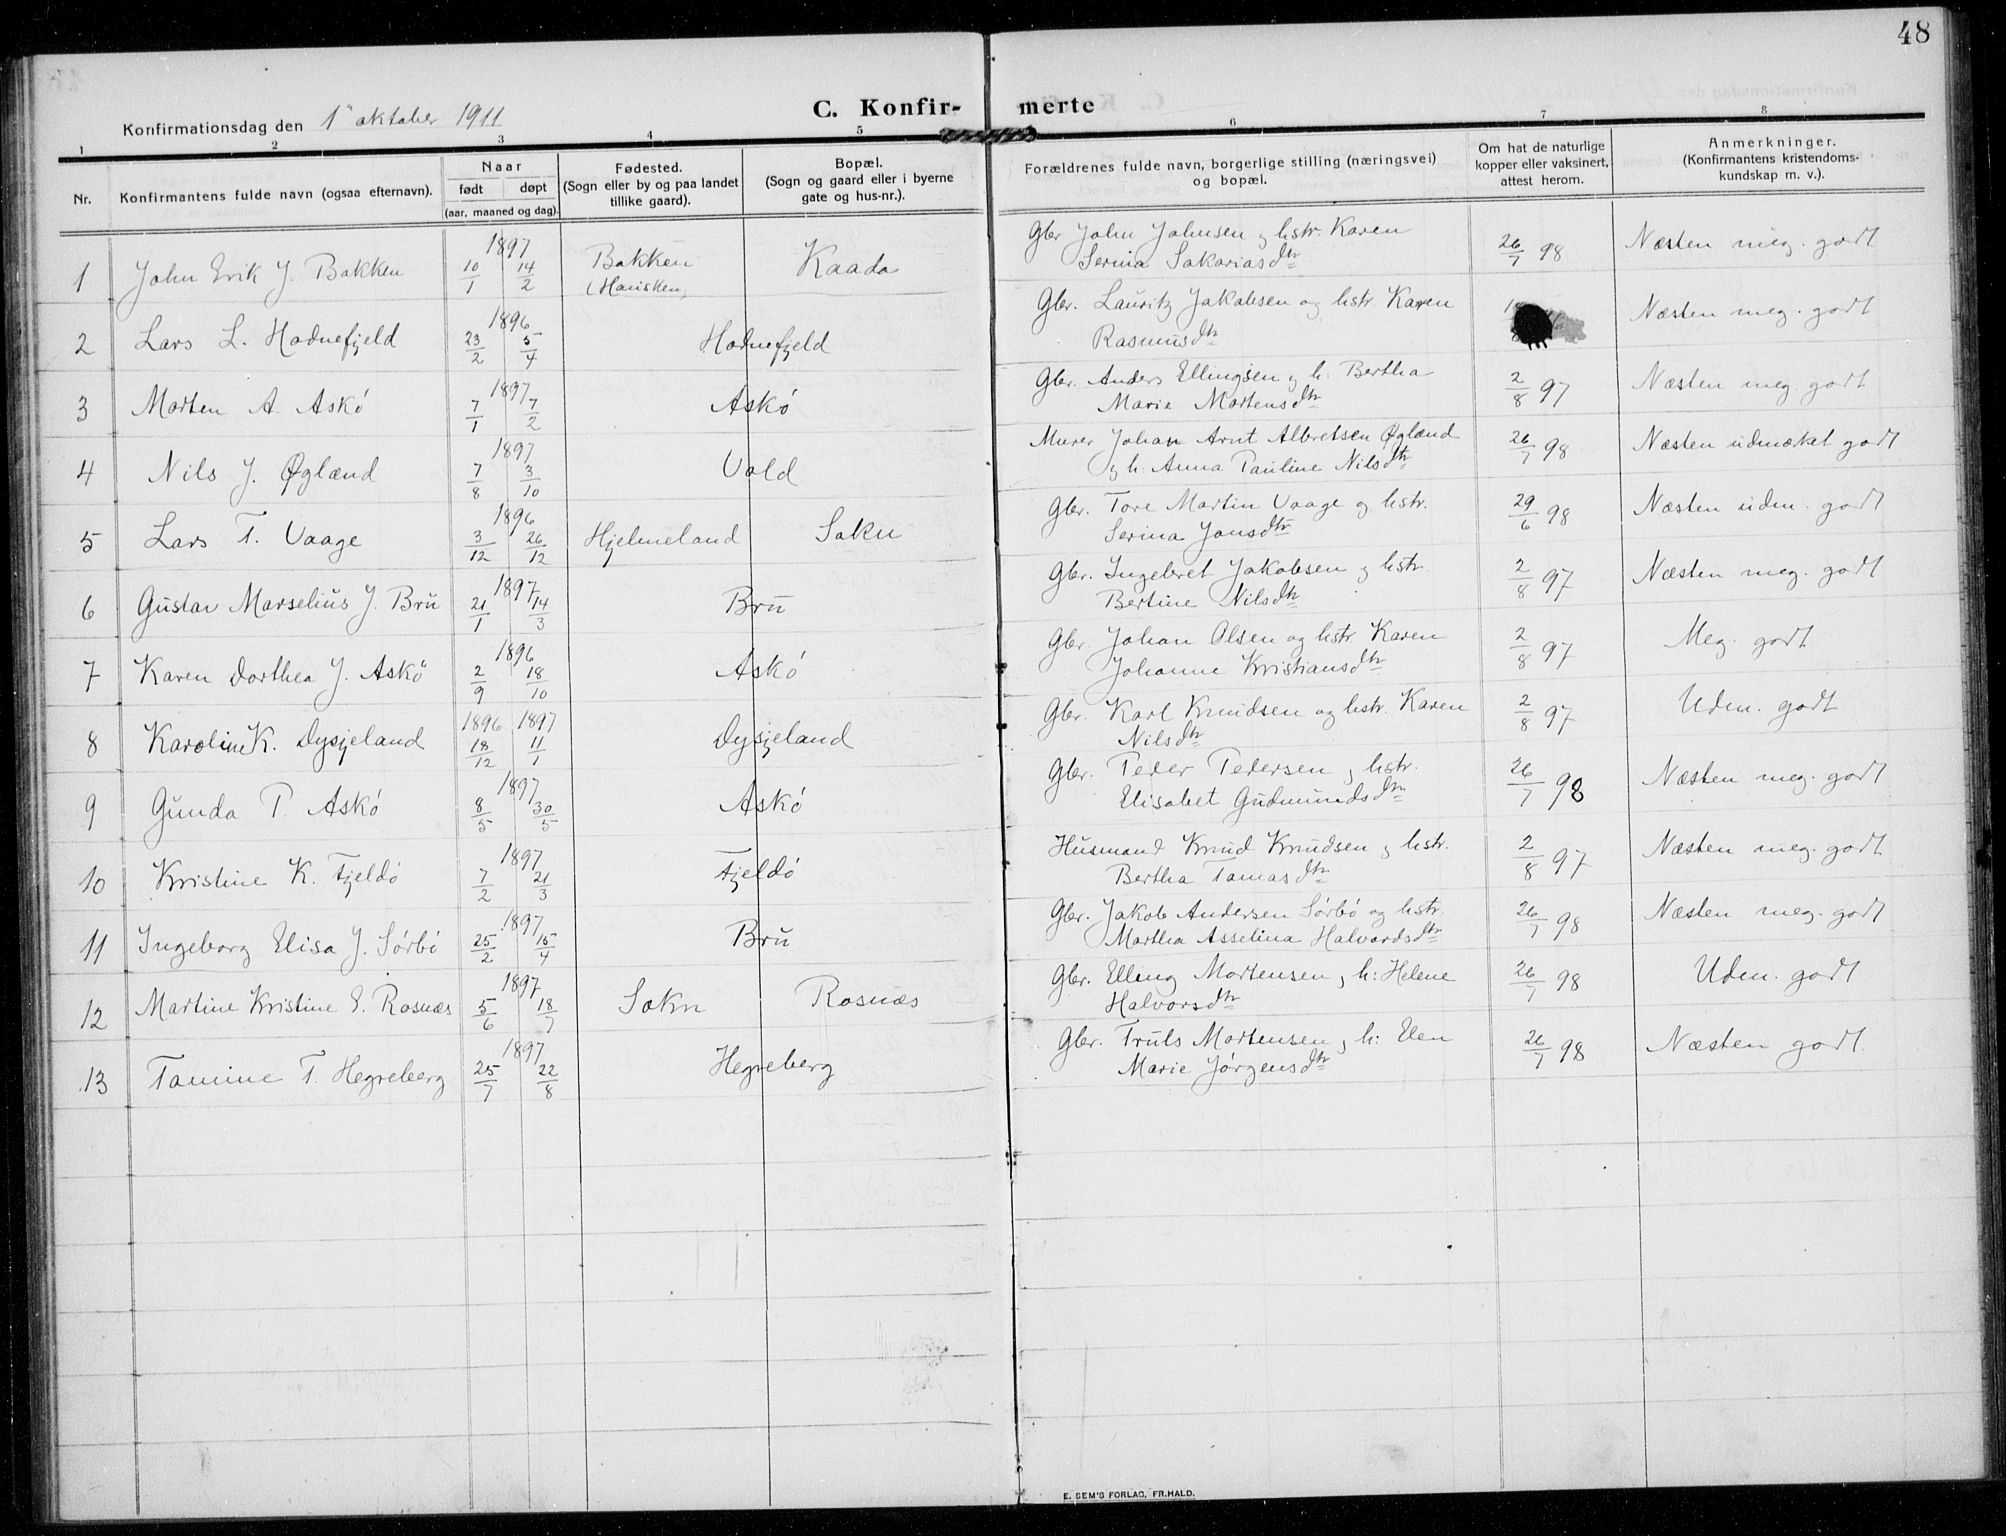 48
Konfirmationsdag den 1ste oktober 1911
C. Konfir- merte
1 2 3 4 5 6 7 8
Nr.
Konfirmantens fulde navn (ogsaa efternavn).
Naar
født døpt
(aar, maaned og dag).
Fødested.
(Sogn eller by og paa landet
tillike gaard).
Bopæl.
(Sogn og gaard eller i byerne
gate og hus-nr.).
Forældrenes fulde navn, borgerlige stilling (næringsvei)
og bopæl.
Om hat de naturlige
kopper eller vaksinert,
attest herom.
Anmerkninger.
(Konfirmantens kristendoms-
kundskap m. v.).
1 John Erik J. Bakken 1897 10/1 14/2 Bakken Kaada Gbr John Johnsen og hstr. Karen 26/7 98 Næsten meg. godt
Serina Sakariasdtr
2 Lars L. Hodnefjeld 1896 23/2 5/4 Hodnefjeld Gbr. Lauritz Jakobsen og hstr. Karen Næsten meg. godt
Rasmusdtr
3 Morten A. Askö 1897 7/1 7/2 Askö Gbr. Anders Ellingsen og h: Bertha 2/8 97 Næsten meg. godt
Marie Mortensdtr
4 Nils J. Øglænd 1897 7/8 3/10 Vold Murer Johan Arnt Albretsen Øglænd 26/7 98 Næsten udmæket godt
og h: Anna Pauline Nilsdtr
5 Lars T. Vaage 1896 3/12 26/12 Hjelmeland Sokn Gbr. Tore Martin Vaage og hstr. 29/6 98 Næsten udm. godt
Serina Jonsdtr
6 Gustav Marselius J. Bru 1897 21/1 14/3 Bru Gbr. Ingebret Jakobsen og hstr. 2/8 97 Næsten meg. godt
Bertine Nilsdtr
7 Karen Dorthea J. Askö 1896 2/9 18/10 Askö Gbr. Johan Olsen og hstr. Karen 2/8 97 Meg. godt
Johanne Kristiansdtr
8 Karoline K. Dysjeland 1896 18/12 1897 11/1 Dysjeland Gbr. Karl Knudsen og hstr. Karen 2/8 97 Udm. godt
Nilsdtr
9 Gunda P. Askö 1897 8/5 30/5 Askö Gbr. Peder Pedersen og hstr. 26/7 98 Næsten meg. godt
Elisabet Gudmundsdtr
10 Kristine K. Fjeldö 1897 7/2 21/3 Fjeldö Husmand Knud Knudsen og hstr. 2/8 97 Næsten meg. godt
Bertha Tomasdtr
11 Ingeborg Elisa J. Sörbö 1897 25/2 15/4 Bru Gbr. Jakob Andersen Sörbö og hstr. 26/7 98 Næsten meg. godt
Martha Asselina Halvordsdtr
12 Martine Kristine E. Rosnæs 1897 5/6 18/7 Sokn Rosnæs Gbr. Elling Mortensen og h: Helene 26/7 98 Udm. godt
Halvorsdtr
13 Tomine T. Hegreberg 1897 25/7 22/8 Hegreberg Gbr. Truls Mortensen og h: Elen 26/7 98 Næsten godt.
Marie Jörgensdtr
E. SEM'S FORLAG, FR.HALD.